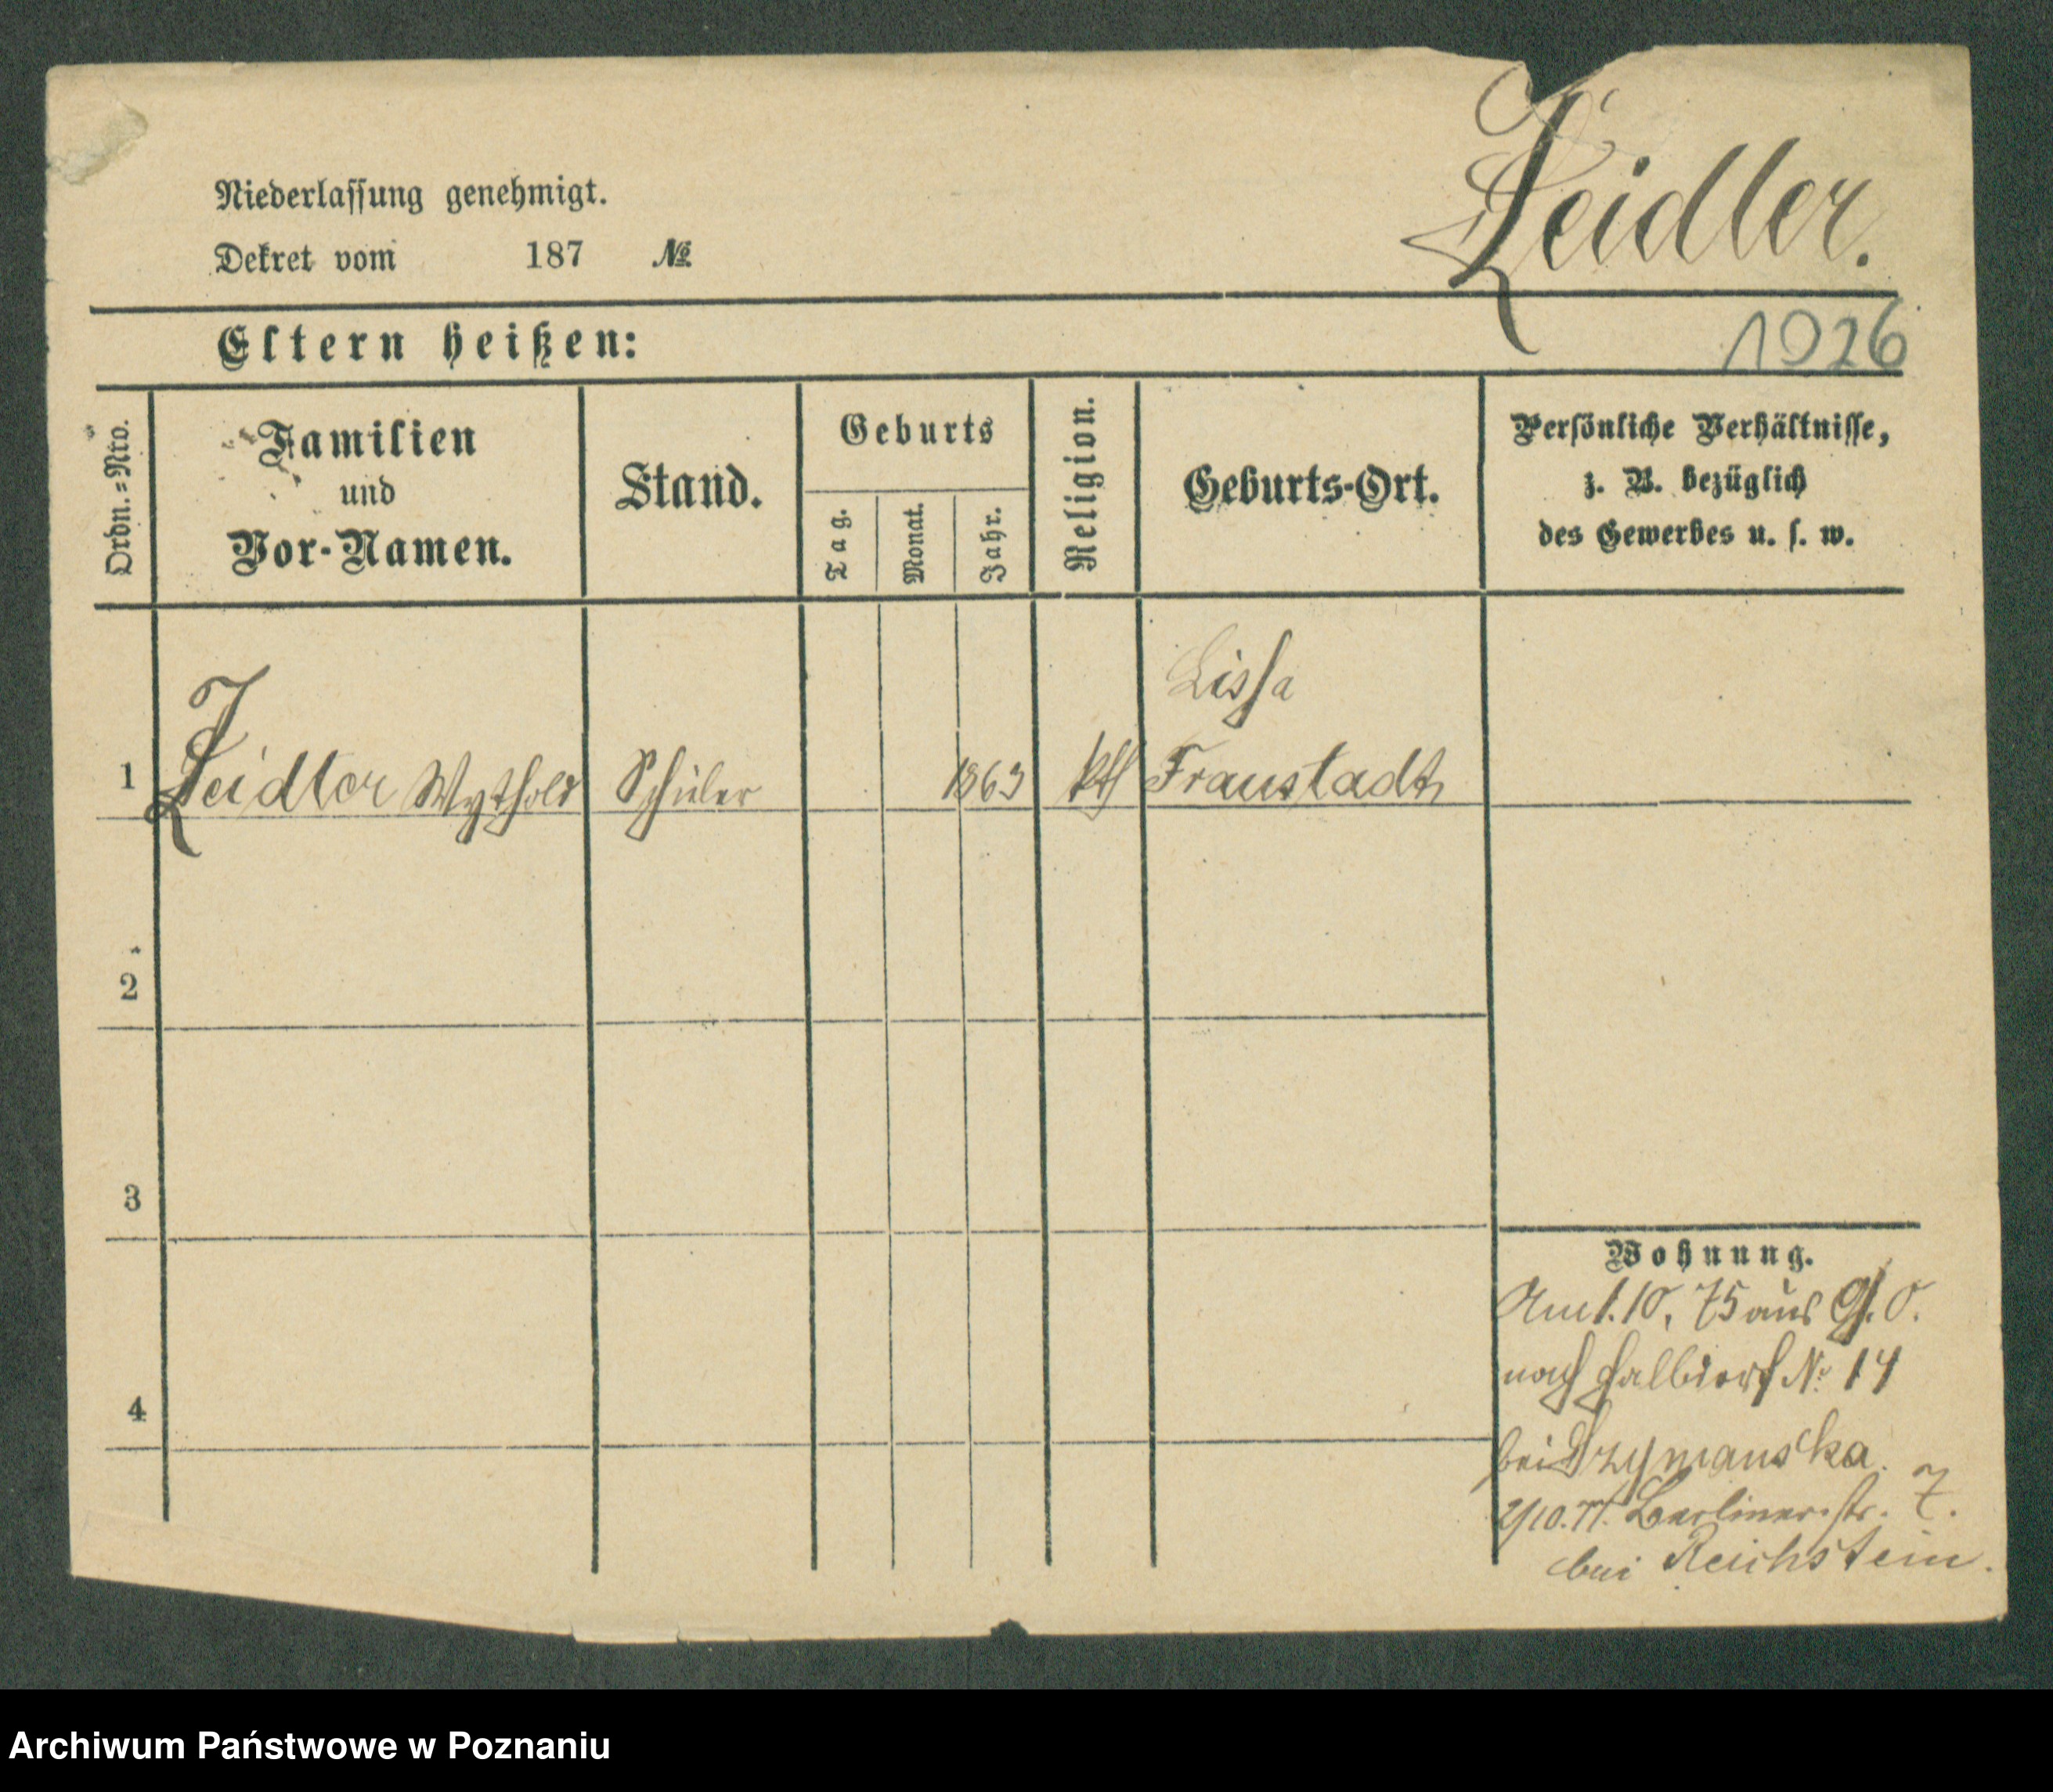 Zeidler.
Niederlassung genehmigt.
Dekret vom 187 №
1026
Eltern heißen:
Ordn.=Nro.
Familien
und
Vor-Namen.
Stand.
Geburts
Tag.
Monat.
Jahr.
Religion.
Geburts-Ort.
Persönliche Verhältnisse,
z. B. bezüglich
des Gewerbes u. s. w.
Lissa
1 Zeidler Wythold Schüler 1863 kth Fraustadt
2
3
4
Wohnung.
Am 1.10.75 aus G. O.
nach Halbdorf № 14
bei Szymanska.
2/10.77. Berliner str. 7.
bei Reichstein.
Archiwum Państwowe w Poznaniu